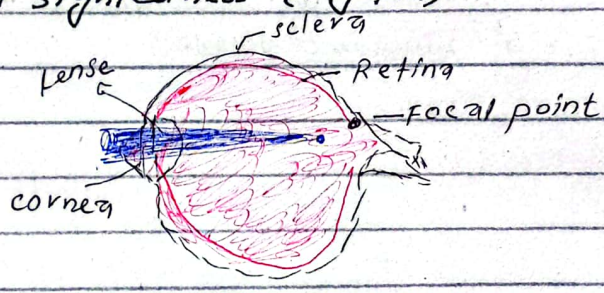 sclera
Lense
Retina
Focal point
cornea